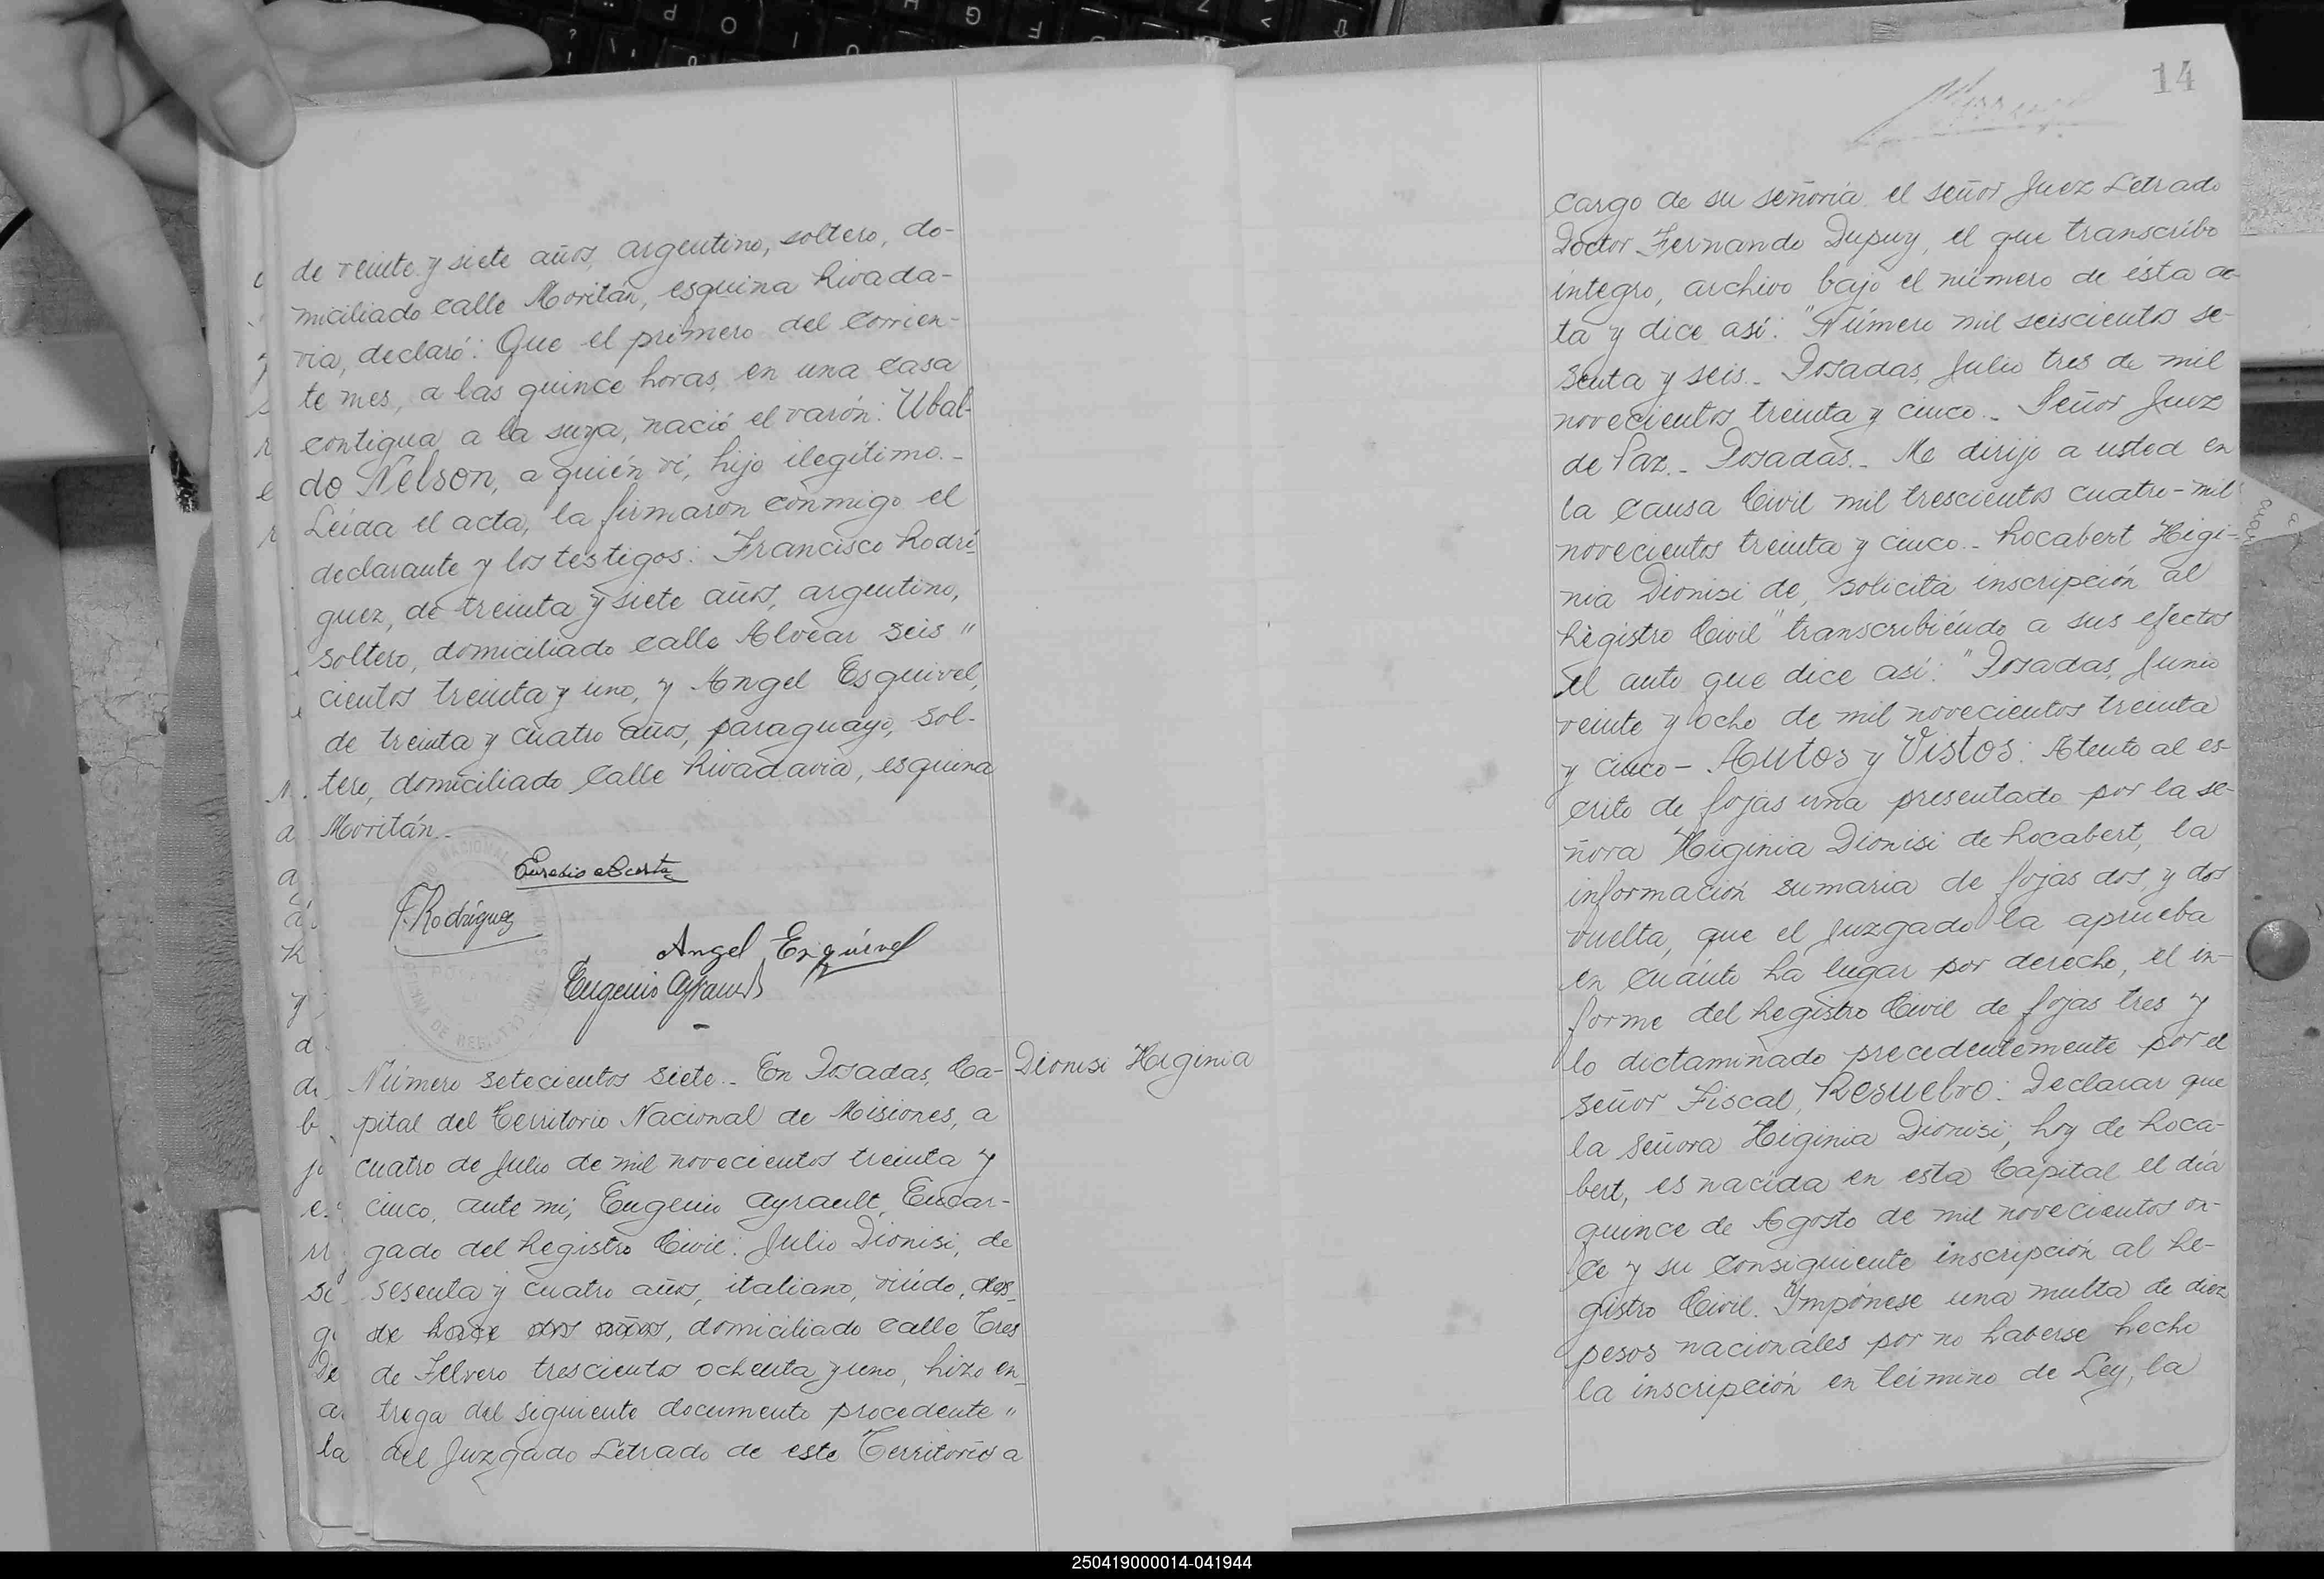 de veinte y siete años, argentino, soltero, do-
miciliado calle Moritán, esquina Rivada-
via, declaró: Que el primero del corrien-
te mes, a las quince horas, en una casa
contigua a la suya, nació el varón: Ubal-
do Nelson, a quién ví, hijo ilegítimo.-
Leída el acta, la firmaron conmigo el
declarante y los testigos: Francisco Rodrí-
guez, de treinta y siete años, argentino,
soltero, domiciliado calle Alvear seis "
cientos treinta y uno, y Angel Esquivel,
de treinta y cuatro años, paraguayo, sol-
tero, domiciliado calle Rivadavia, esquina
Moritán.-
F. Rodríguez
Angel Esquivel
Eugenio Ayrault
Número setecientos siete.- En Posadas, Ca-
pital del Territorio Nacional de Misiones, a
cuatro de Julio de mil novecientos treinta y
cinco, ante mí, Eugenio Ayrault, Encar-
gado del Registro Civil: Julio Dionisi, de
sesenta y cuatro años, italiano, viudo, des-
de hace dos años, domiciliado calle Tres
de Febrero trescientos ochenta y uno, hizo en-
trega del siguiente documento procedente "
del Juzgado Letrado de este Territorio a
Dionisi Higinia
14
cargo de su señoría el señor Juez Letrado
Doctor Fernando Dupuy, el que transcribo
íntegro, archivo bajo el número de ésta ac-
ta y dice así: "Número mil seiscientos se-
senta y seis.- Posadas, Julio tres de mil
novecientos treinta y cinco.- Señor Juez
de Paz.- Posadas.- Me dirijo a usted en
la causa Civil mil trescientos cuatro-mil
novecientos treinta y cinco.- Rocabert Higi-
nia Dionisi de, solicita inscripción al
Registro Civil" transcribiéndo a sus efectos
el auto que dice así: "Posadas, Junio
veinte y ocho de mil novecientos treinta
y cinco - Autos y Vistos: Atento al es-
crito de fojas una presentado por la se-
ñora Higinia Dionisi de Rocabert, la
información sumaria de fojas dos y dos
vuelta, que el Juzgado la aprueba
en cuánto ha lugar por derecho, el in-
forme del Registro Civil de fojas tres y
lo dictaminado precedentemente por el
señor Fiscal, Resuelvo: Declarar que
la señora Higinia Dionisi, hoy de Roca-
bert, es nacida en esta Capital el día
quince de Agosto de mil novecientos on-
ce y su consiguiente inscripción al Re-
gistro Civil. Impónese una multa de diez
pesos nacionales por no haberse hecho
la inscripción en término de Ley, la
250419000014-041944